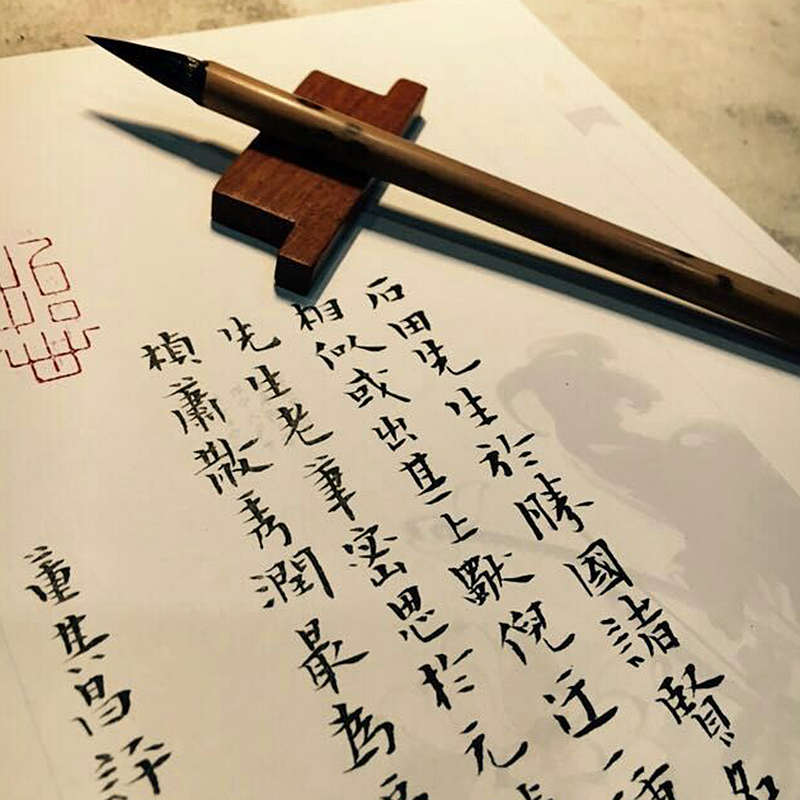 石田先生於勝國諸賢名
相似或出其上獨倪迂一種
先生老筆密思於元
楨蕭散秀潤最為
董其昌評